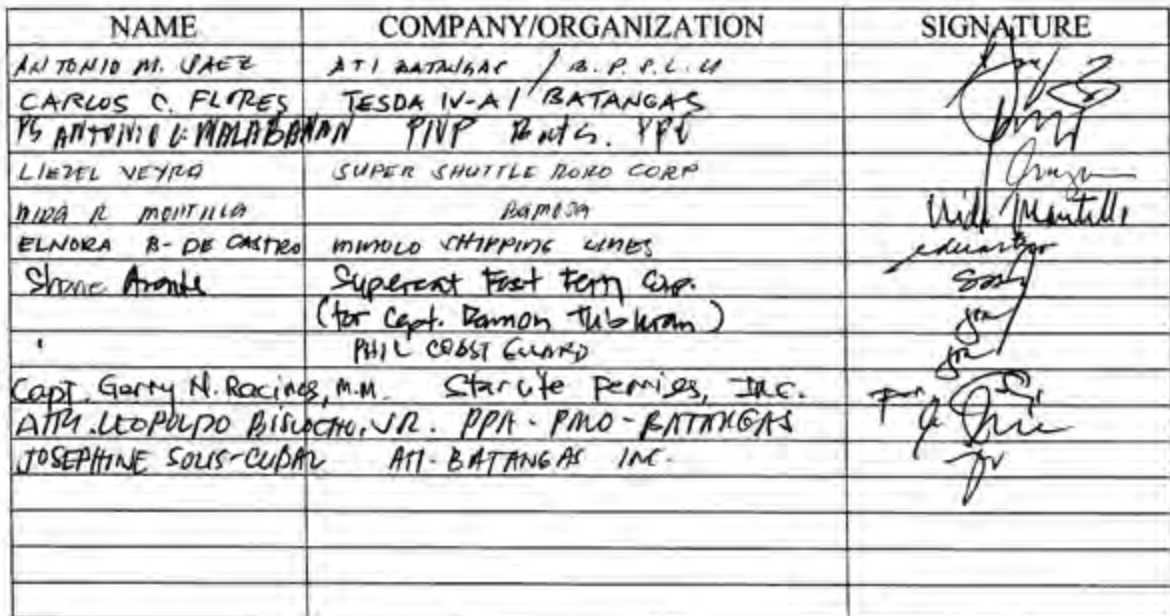 NAME COMPANY/ORGANIZATION SIGNATURE
ANTONIO M. VAEZ ATI BATANGAS / B.P.S.L.U
CARLOS C. FLORES TESDA IV-A / BATANGAS
ANTONIO MALABANAN PNP
LIEZEL VEYRA SUPER SHUTTLE RORO CORP
NIDA R MONTILLA BAMOSA Nida Montilla
ELNORA B- DE CASTRO MMOLO SHIPPING LINES
Shane Arante Supercat Fast Ferry Corp.
(for Capt. Damon)
PHIL COAST GUARD
Capt. Garry N. Racines, M.M. Starlite Ferries, Inc.
ATTY. LEOPOLDO BISCOCHO, JR. PPA - PMO - BATANGAS
JOSEPHINE SOLIS-CUBAL ATI-BATANGAS INC.